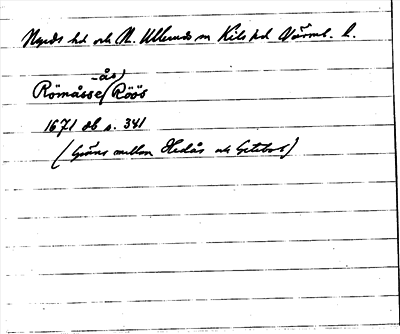 Nyeds hd och N. Ulleruds sn Kils hd Värml. l.
-ås)
Römåsse (Röös
1671 db s. 341
(Gräns mellan Hedås och Getebol)